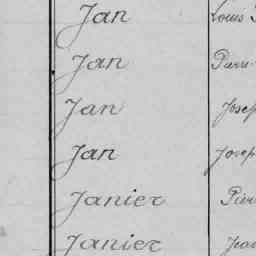 Jan Louis
Jan Pierre
Jan Josep
Jan Josep
Janier Pier
Janier Jean